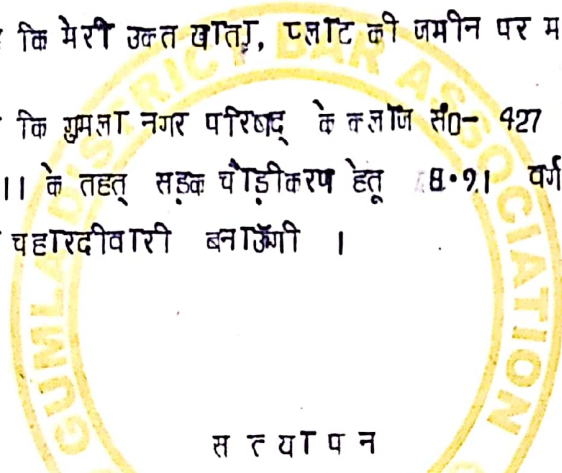 कि मेरी उक्त खाता, प्लाट की जमीन पर म
कि गुमला नगर परिषद् के क्लॉज सं0- 427
11 के तहत् सड़क चौड़ीकरण हेतू 8.91 वर्ग
चहारदीवारी बनाऊँगी ।
स त्यापन
GUMLA DISTRICT BAR ASSOCIATION